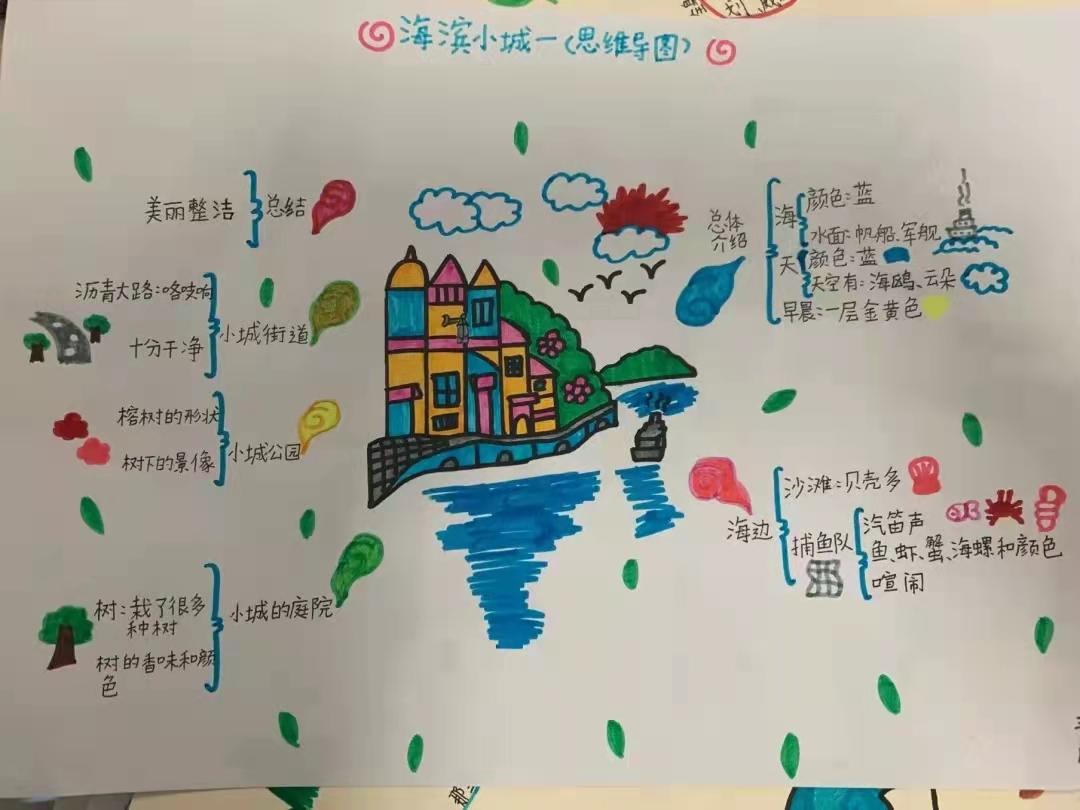 海滨小城一(思维导图)
总体
介绍
海
颜色:蓝
水面:帆船、军舰
天
颜色:蓝
天空有:海鸥、云朵
早晨:一层金黄色
海边
沙滩:贝壳多
捕鱼队
汽笛声
鱼、虾、蟹、海螺和颜色
喧闹
小城的庭院
树:栽了很多
种树
树的香味和颜
色
小城公园
榕树的形状
树下的景像
小城街道
沥青大路:咯吱响
十分干净
总结
美丽整洁